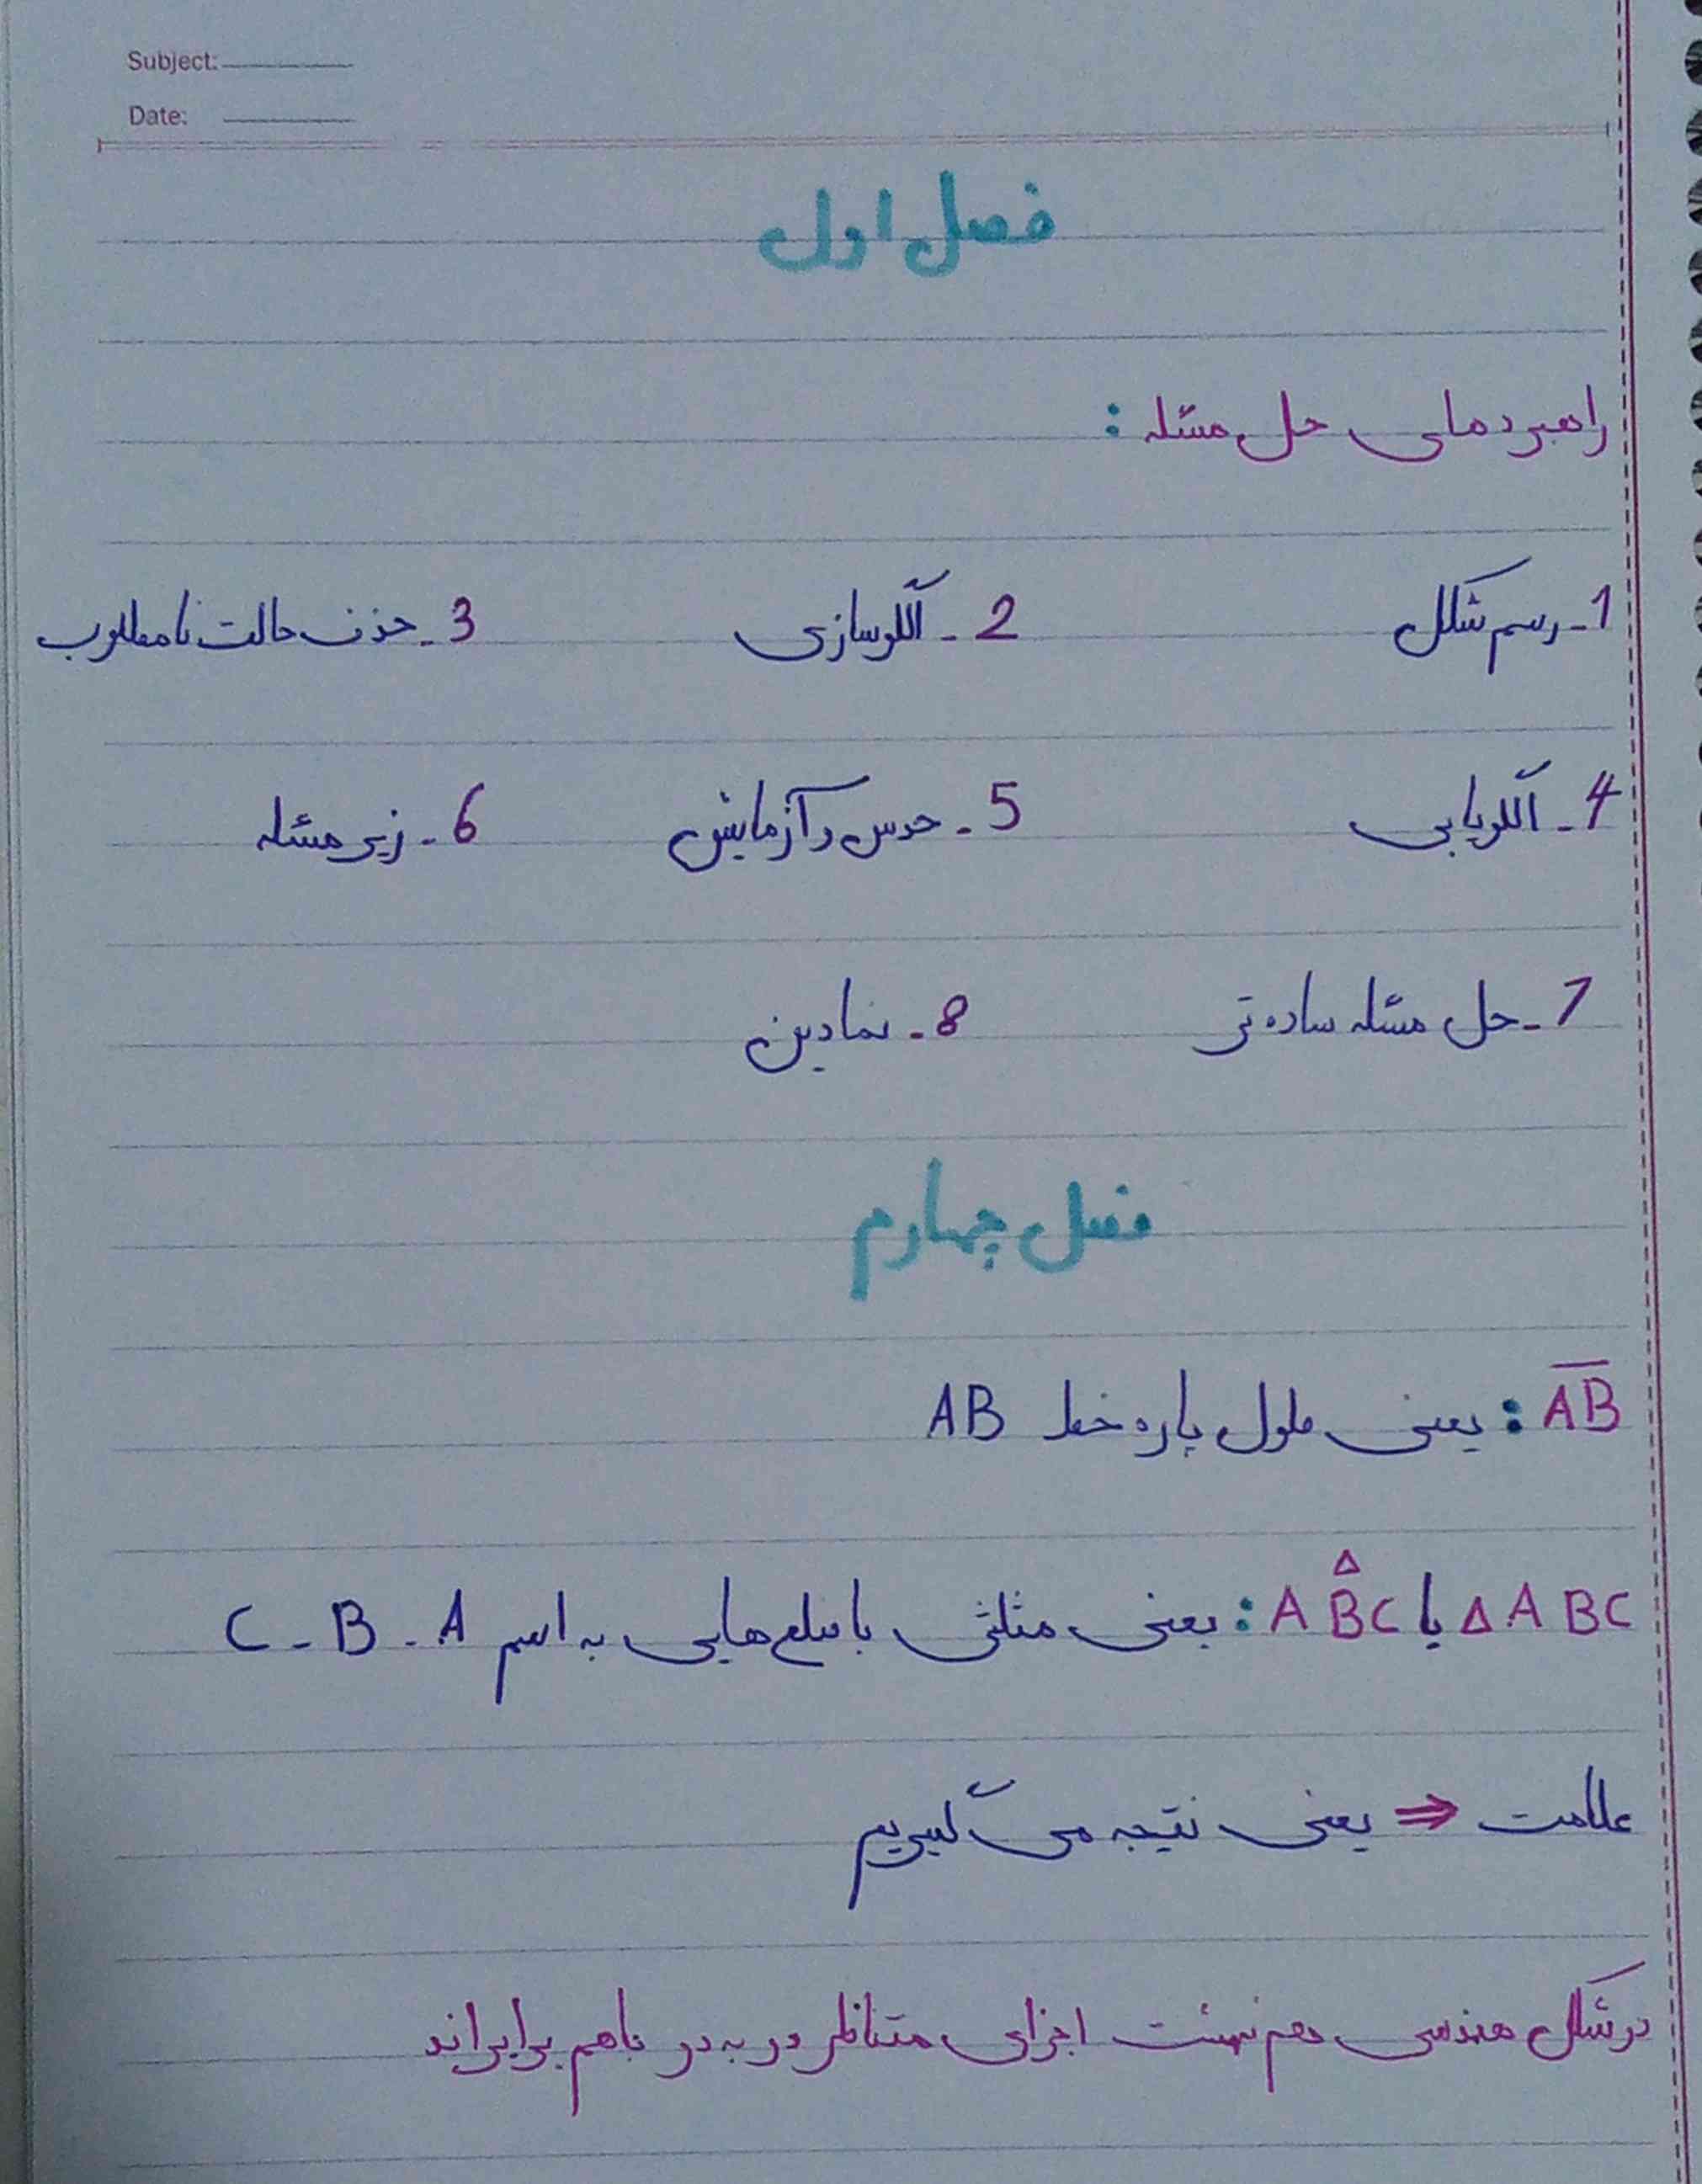 Subject:
Date:
فصل اول
راهبردهای حل مسئله :
1_ رسم شکل 2_ الگوسازی 3_ حذف حالت نامطلوب
4_ الگویابی 5_ حدس و آزمایش 6_ زیر مسئله
7_ حل مسئله ساده تر 8_ نمادین
فصل چهارم
A̅B̅ : یعنی طول پاره خط AB
△ABC یا AB̂C : یعنی مثلثی با ضلع هایی به اسم A - B - C
علامت ⇒ یعنی نتیجه می گیریم
در شکل هندسی هم نهشت اجزای متناظر دو به دو باهم برابراند